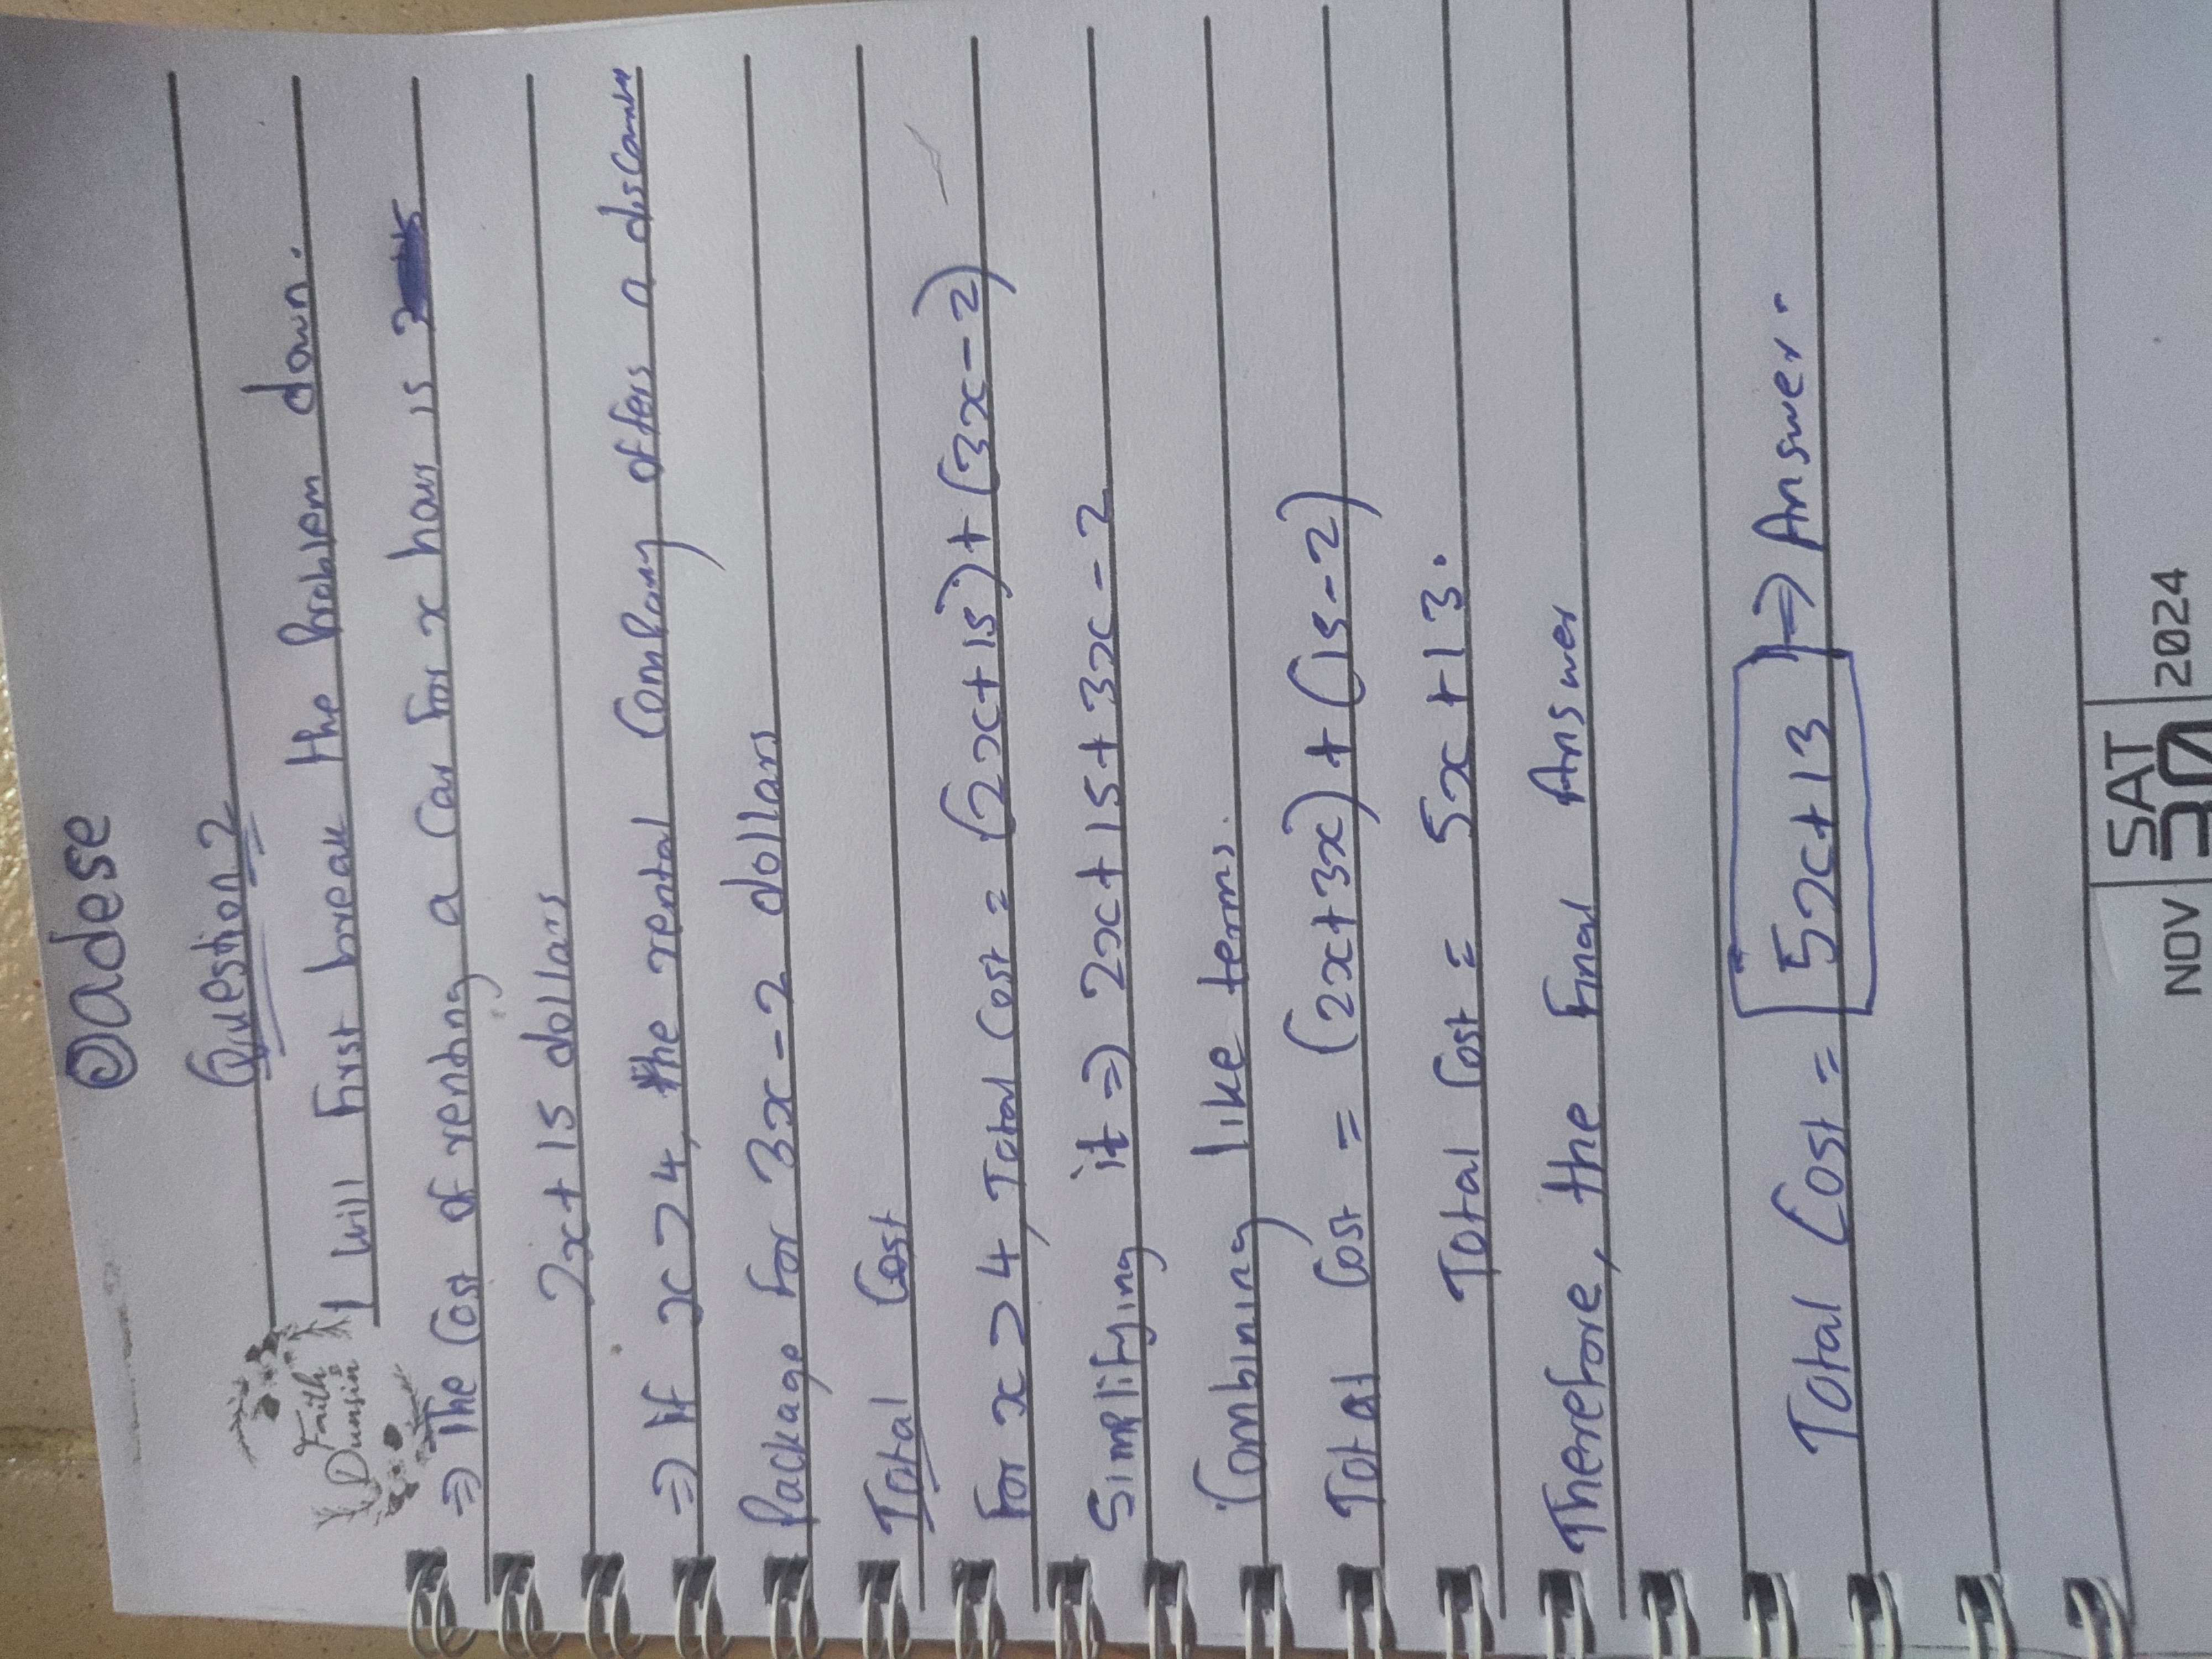 @adese
Question 2
Faith
Dunsin
I will first break the problem down.
⇒ The Cost of renting a Car for x hours is
2x + 15 dollars
⇒ If x > 4, the rental Company offers a discount
Package for 3x - 2 dollars
Total Cost
For x > 4, Total Cost = (2x + 15) + (3x - 2)
Simplifying it ⇒ 2x + 15 + 3x - 2
Combining like terms.
Total Cost = (2x + 3x) + (15 - 2)
Total Cost = 5x + 13.
Therefore, the Final Answer
Total Cost = 5x + 13 ⇒ Answer.
NOV SAT 30 2024